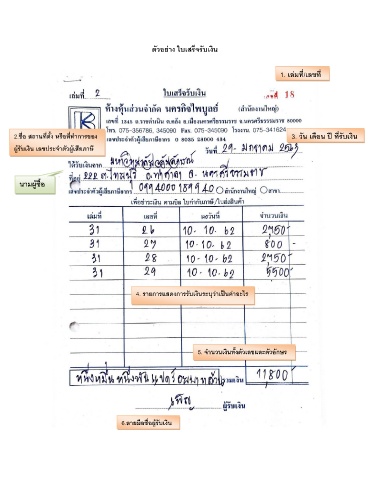 ตัวอย่าง ใบเสร็จรับเงิน
1. เล่มที่/เลขที่
เล่มที่ 2 ใบเสร็จรับเงิน เลขที่ 18
ห้างหุ้นส่วนจำกัด นครกิจไพบูลย์ (สำนักงานใหญ่)
โทร. 075-356786, 345090 Fax. 075-345090 โรงงาน. 075-341624
2.ชื่อ สถานที่ตั้ง หรือที่ทำการของ
ผู้รับเงิน เลขประจำตัวผู้เสียภาษี
3. วัน เดือน ปี ที่รับเงิน
วันที่ 29 มกราคม 2563
ได้รับเงินจาก มหาวิทยาลัยวลัยลักษณ์
ที่อยู่ 222 ต.ไทยบุรี อ.ท่าศาลา จ.นครศรีธรรมราช
นามผู้ซื้อ
เลขประจำตัวผู้เสียภาษีอากร 0994000189940 สำนักงานใหญ่ สาขา
เพื่อชำระเงิน ตามบิล ใบกำกับภาษี/ใบส่งสินค้า
เล่มที่ เลขที่ ลงวันที่ จำนวนเงิน
31 26 10-10-62 2750
31 27 10-10-62 800
31 28 10-10-62 2750
31 29 10-10-62 5500
4. รายการแสดงการรับเงินระบุว่าเป็นค่าอะไร
5. จำนวนเงินทั้งตัวเลขและตัวอักษร
หนึ่งหมื่นหนึ่งพันแปดร้อยบาทถ้วน รวมเงิน 11,800
ผู้รับเงิน
6.ลายมือชื่อผู้รับเงิน